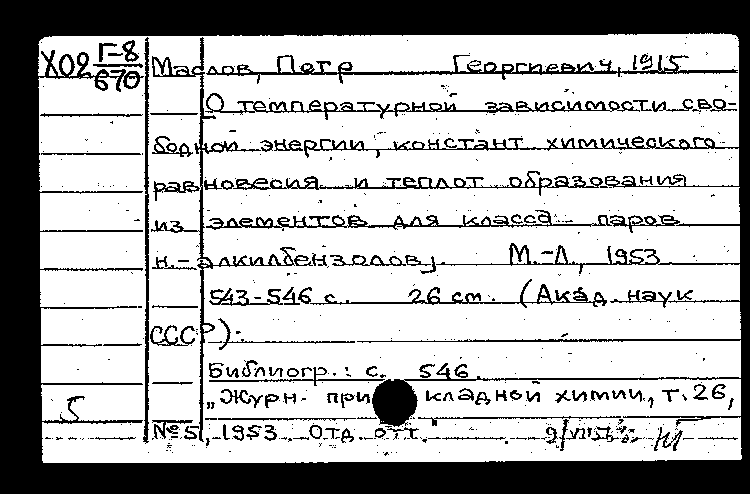 Х02 Г-8/670 Маслов, Петр Георгиевич, 1915
О температурной зависимости сво-
бодной энергии, констант химического
равновесия и теплот образования
из элементов для класса паров
н.-алкилбензолов. М.-Л., 1953
543-546 с. 26 см. (Акад. наук
СССР).
Библиогр.: с. 546.
„Журн. прикладной химии, т. 26,
5
№5, 1953. Отд. отт."